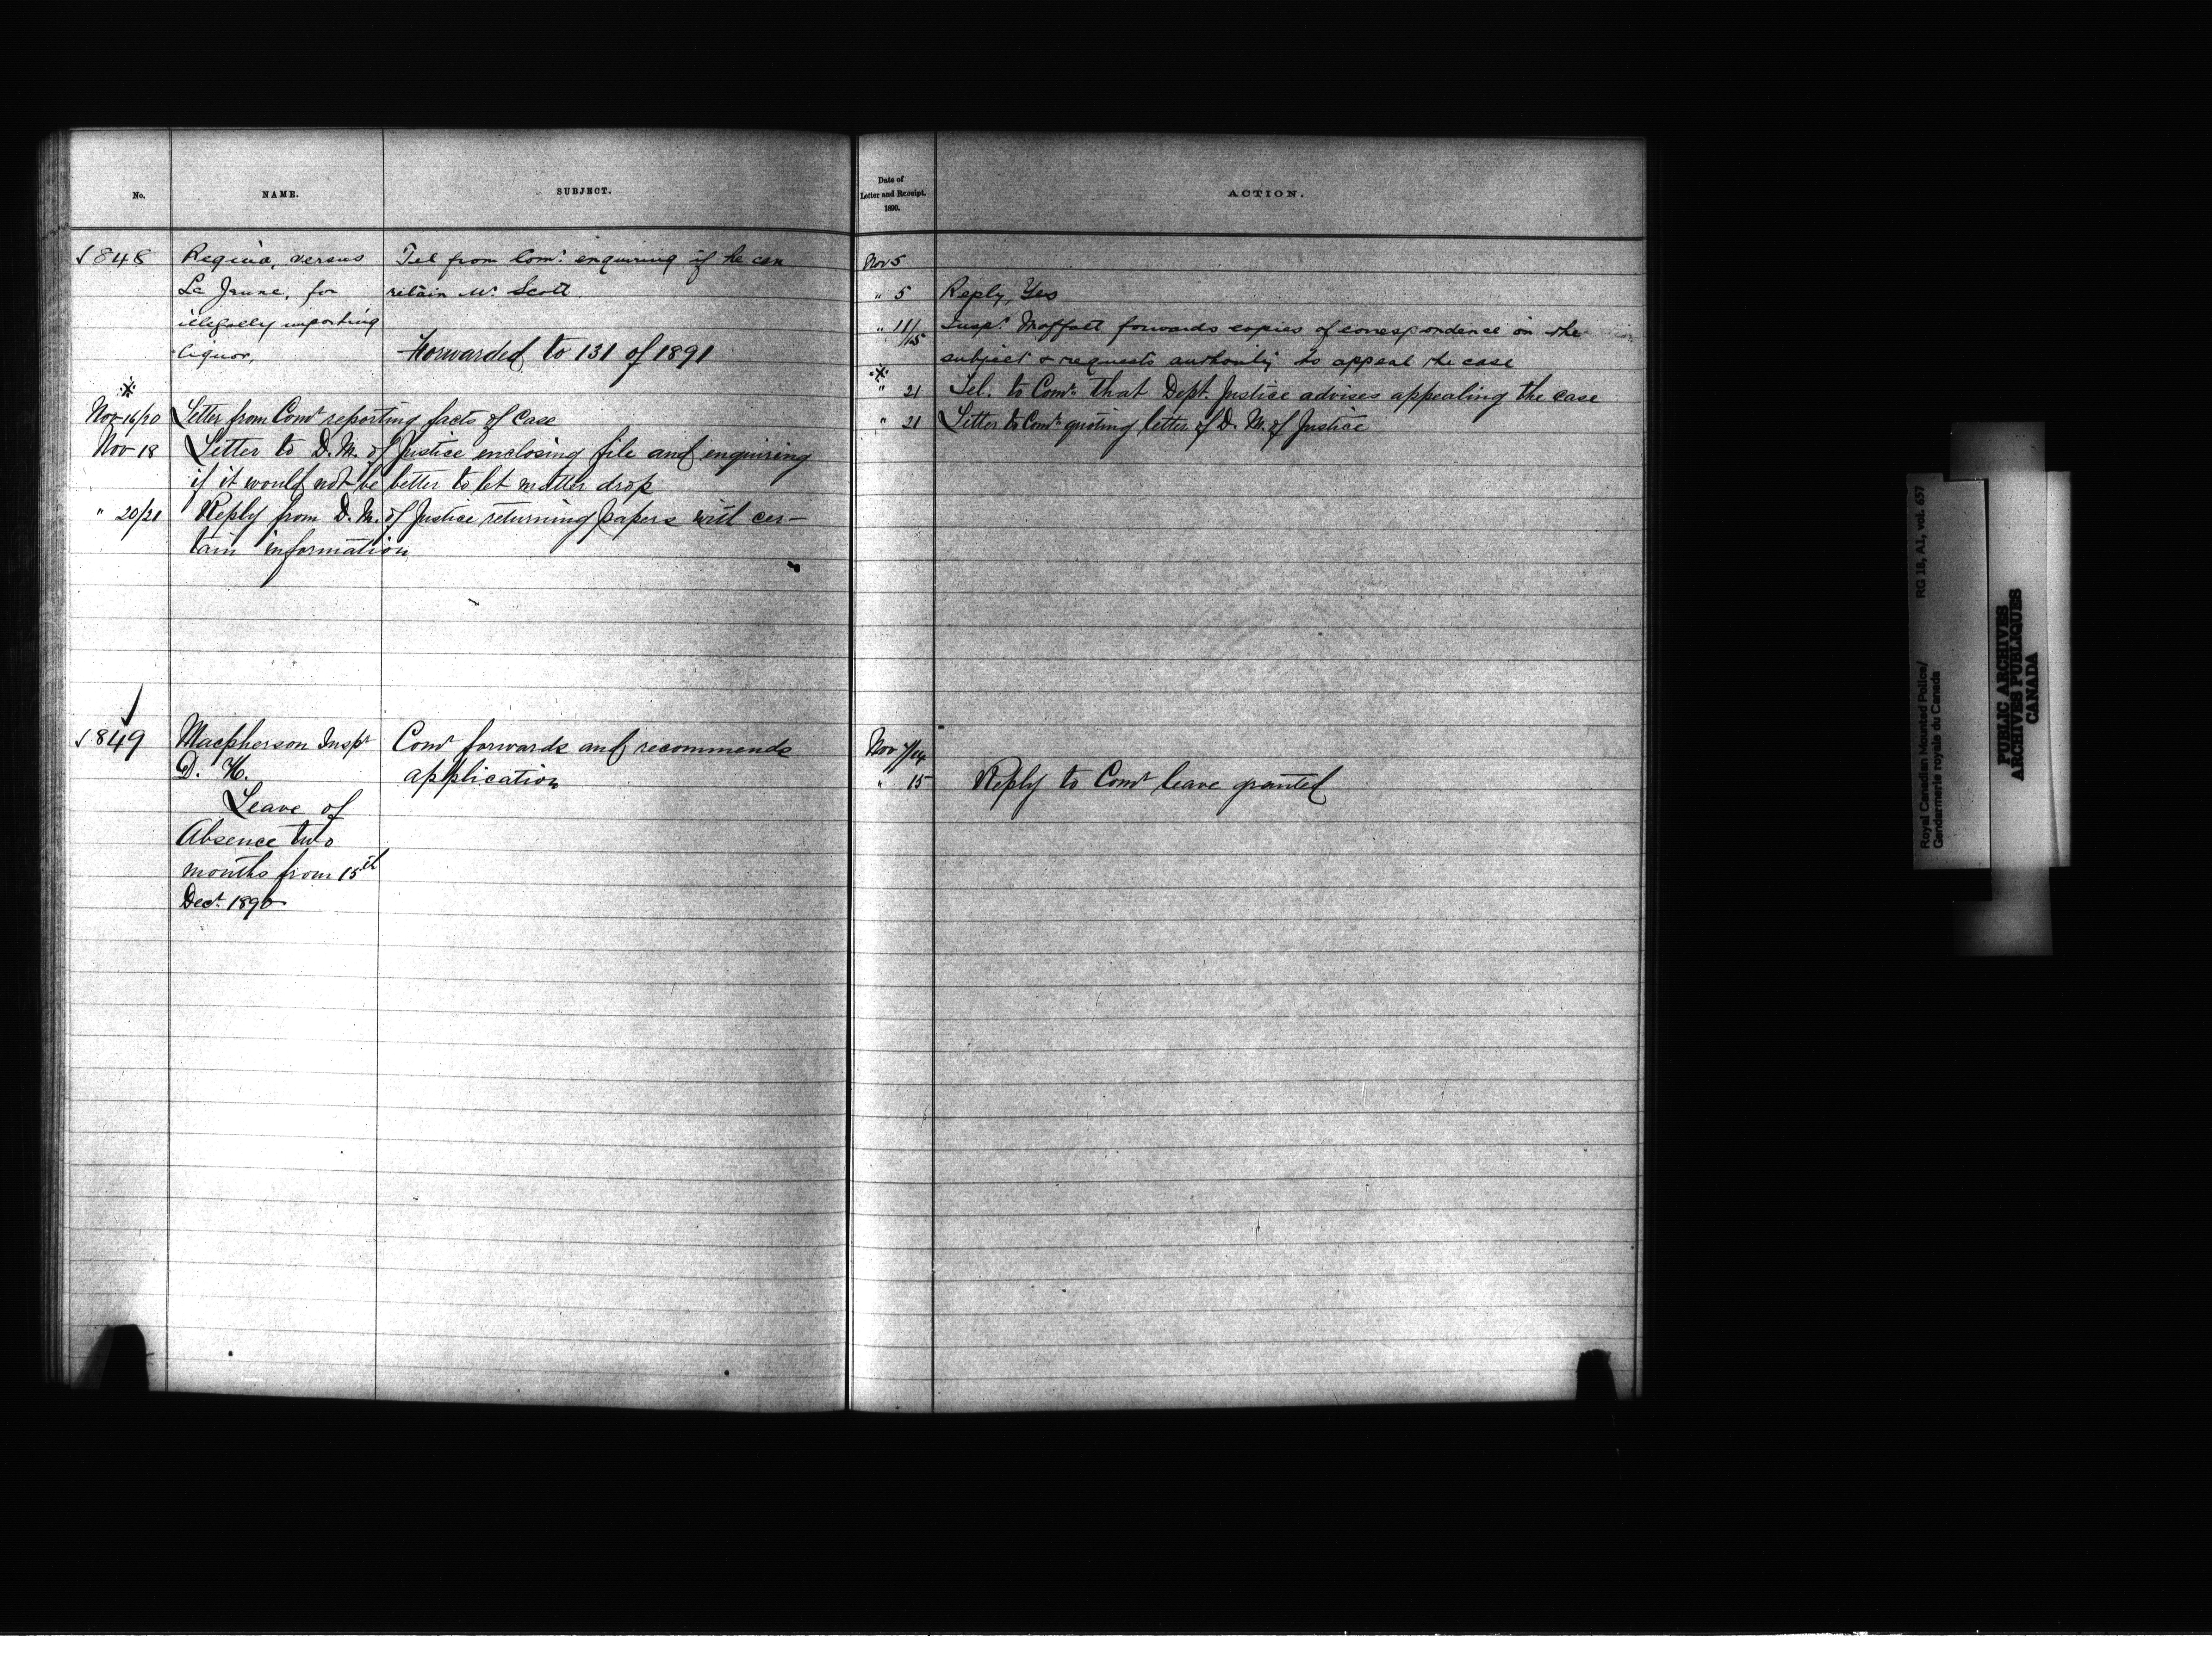 No.
NAME.
SUBJECT.
1848
Regina, versus
La Jeune, for
illegally importing
liquor,
Tel from Comr. enquiring if he can
retain Mr. Scott
Forwarded to 131 of 1891
Nov 16/20 Letter from Comr reporting facts of Case
Nov 18 Letter to D. M. of Justice enclosing file and enquiring
if it would not be better to let matter drop
" 20/21 Reply from D. M. of Justice returning papers with cer-
tain information
1849
Macpherson Inspr
D. H.
Leave of
Absence two
months from 15th
Decr. 1890
Comr forwards and recommends
application
Date of
Letter and Receipt.
1890.
ACTION.
Nov 5
" 5 Reply, Yes
" 11/15 Inspr. Moffatt forwards copies of correspondence on the
subject & requests authority to appeal the case
" 21 Tel. to Comr. that Dept. Justice advises appealing the case
" 21 Letter to Comr. quoting letter of D. M. of Justice
Nov 7/14
" 15 Reply to Comr leave granted
Royal Canadian Mounted Police/
Gendarmerie royale du Canada
RG 18, A1, vol. 657
PUBLIC ARCHIVES
ARCHIVES PUBLIQUES
CANADA